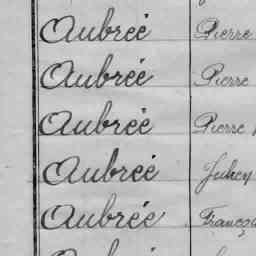 Aubrée Pierre
Aubrée Pierre
Aubrée Pierre
Aubrée
Aubrée Franço